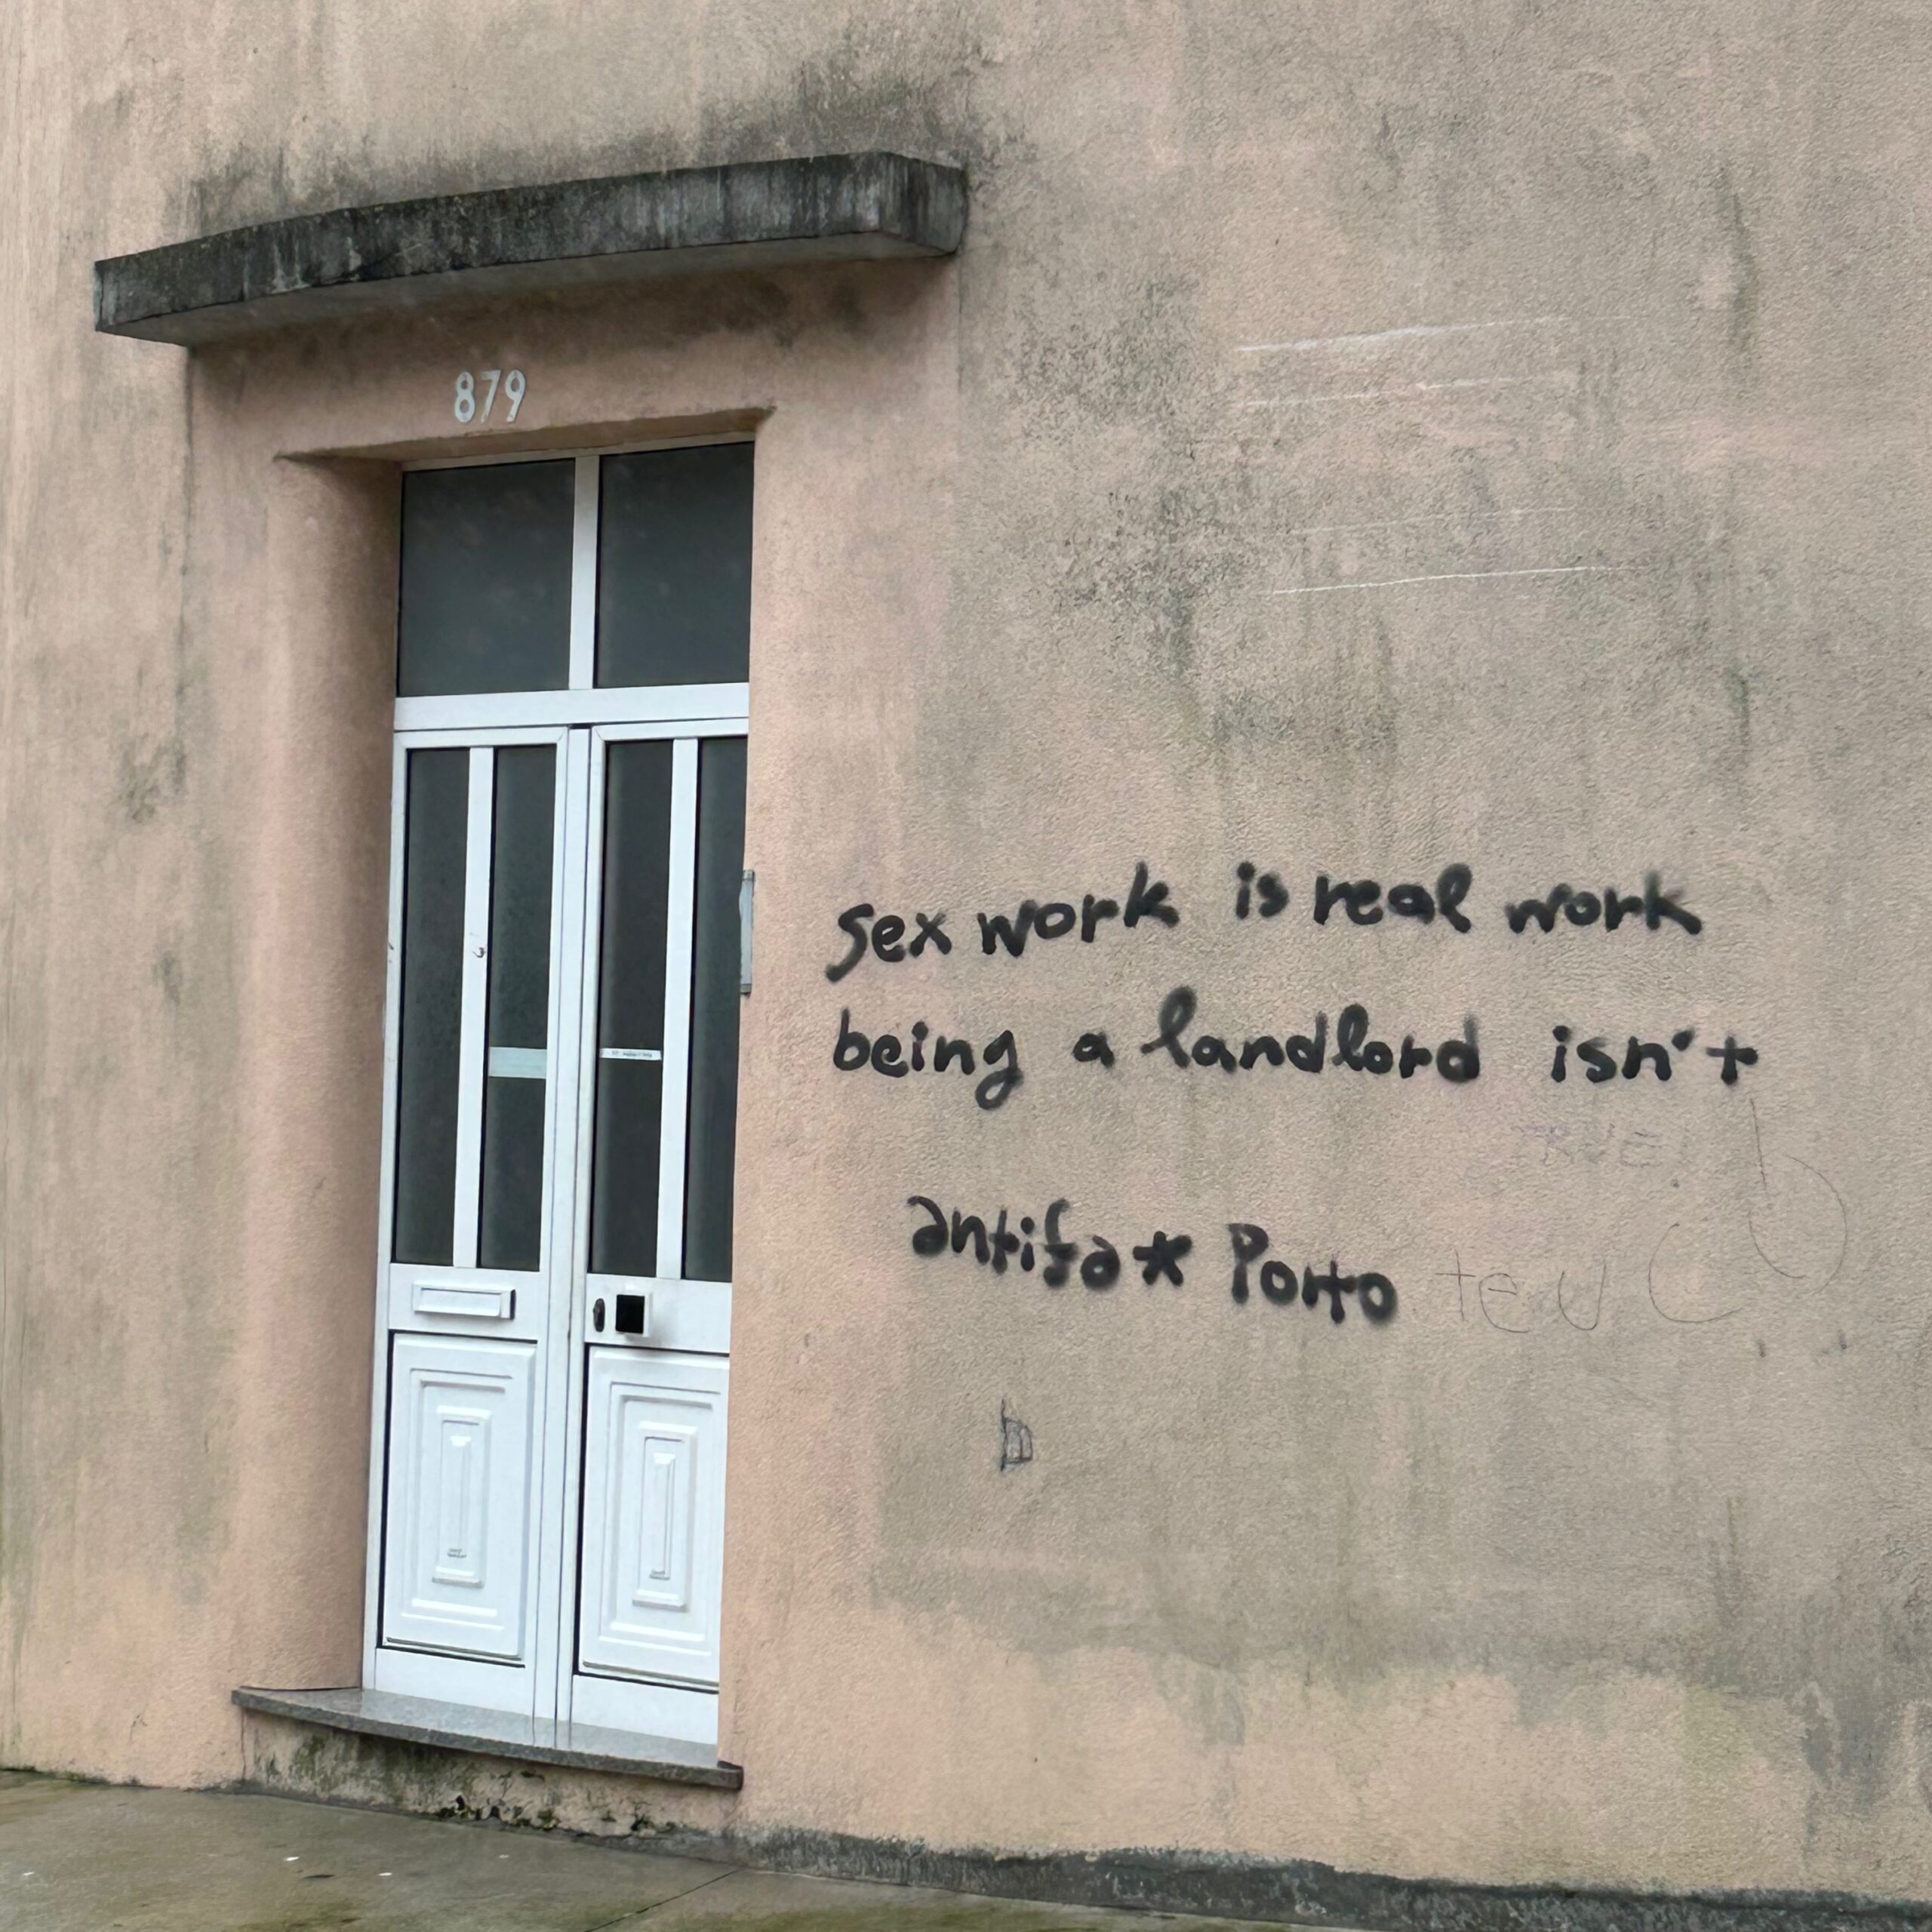 879
sex work is real work
being a landlord isn't
TRUE!
antifa* Porto
teu